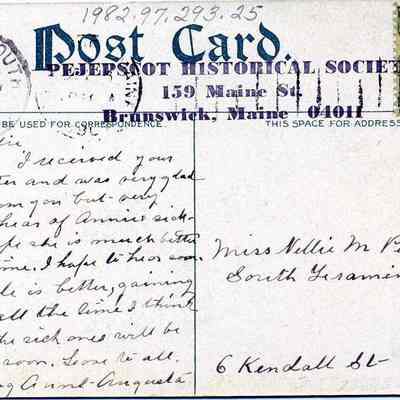 1982.97.293.25
Post Card.
PEJEPSCOT HISTORICAL SOCIET
159 Maine St.
Brunswick, Maine 04011
BE USED FOR CORRESPONDENCE
THIS SPACE FOR ADDRESS
I received your
and was very glad
from you but very
hear of Annie's sick-
she is much better
time. I hope to hear soon
is better, gaining
all the time I think
the sick ones will be
soon. Love to all.
Aunt Augusta
Miss Nellie M
South Framin
6 Kendall St-